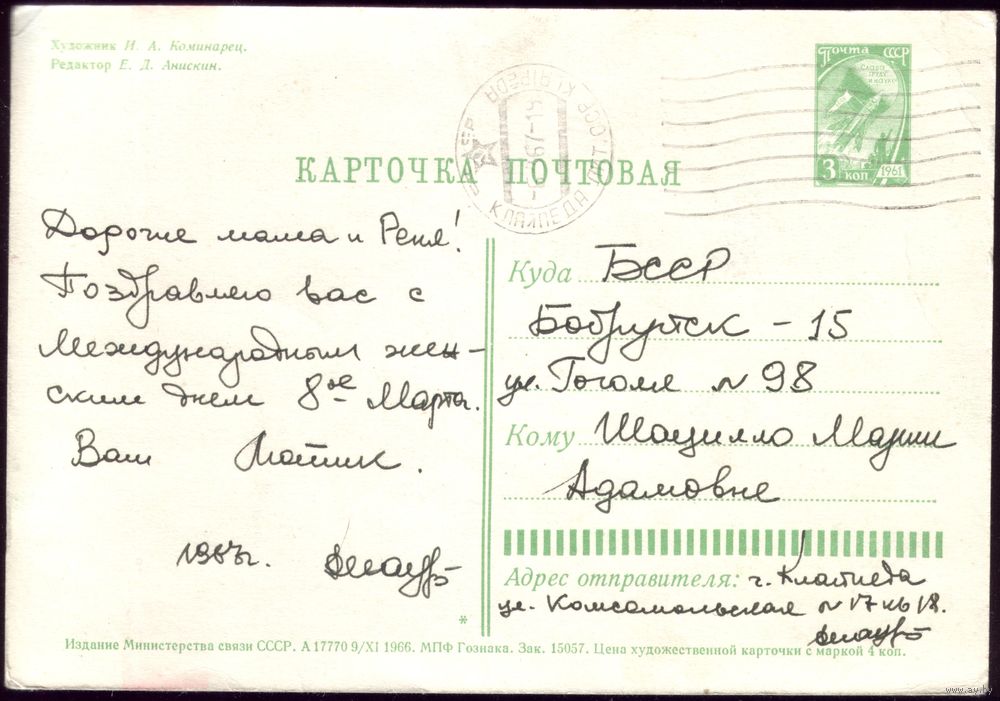 Художник И. А. Коминарец.
Редактор Е. Д. Анискин.
ПОЧТА СССР
СЛАВА
ТРУДУ
И НАУКЕ
3 КОП
1961
КЛАЙПЕДА ЛИТ.ССР KLAIPĖDA
КАРТОЧКА ПОЧТОВАЯ
Дорогие мама и Реня!
Поздравляю вас с
Международным жен-
ским днем 8ое Марта.
Ваш
1967г.
Куда БССР
Бобруйск - 15
ул. Гоголя №98
Кому Шацилло Марии
Адамовне
Адрес отправителя: г. Клайпеда
ул. Комсомольская №17 кв 18.
*
Издание Министерства связи СССР. А 17770 9/XI 1966. МПФ Гознака. Зак. 15057. Цена художественной карточки с маркой 4 коп.
www.ay.by